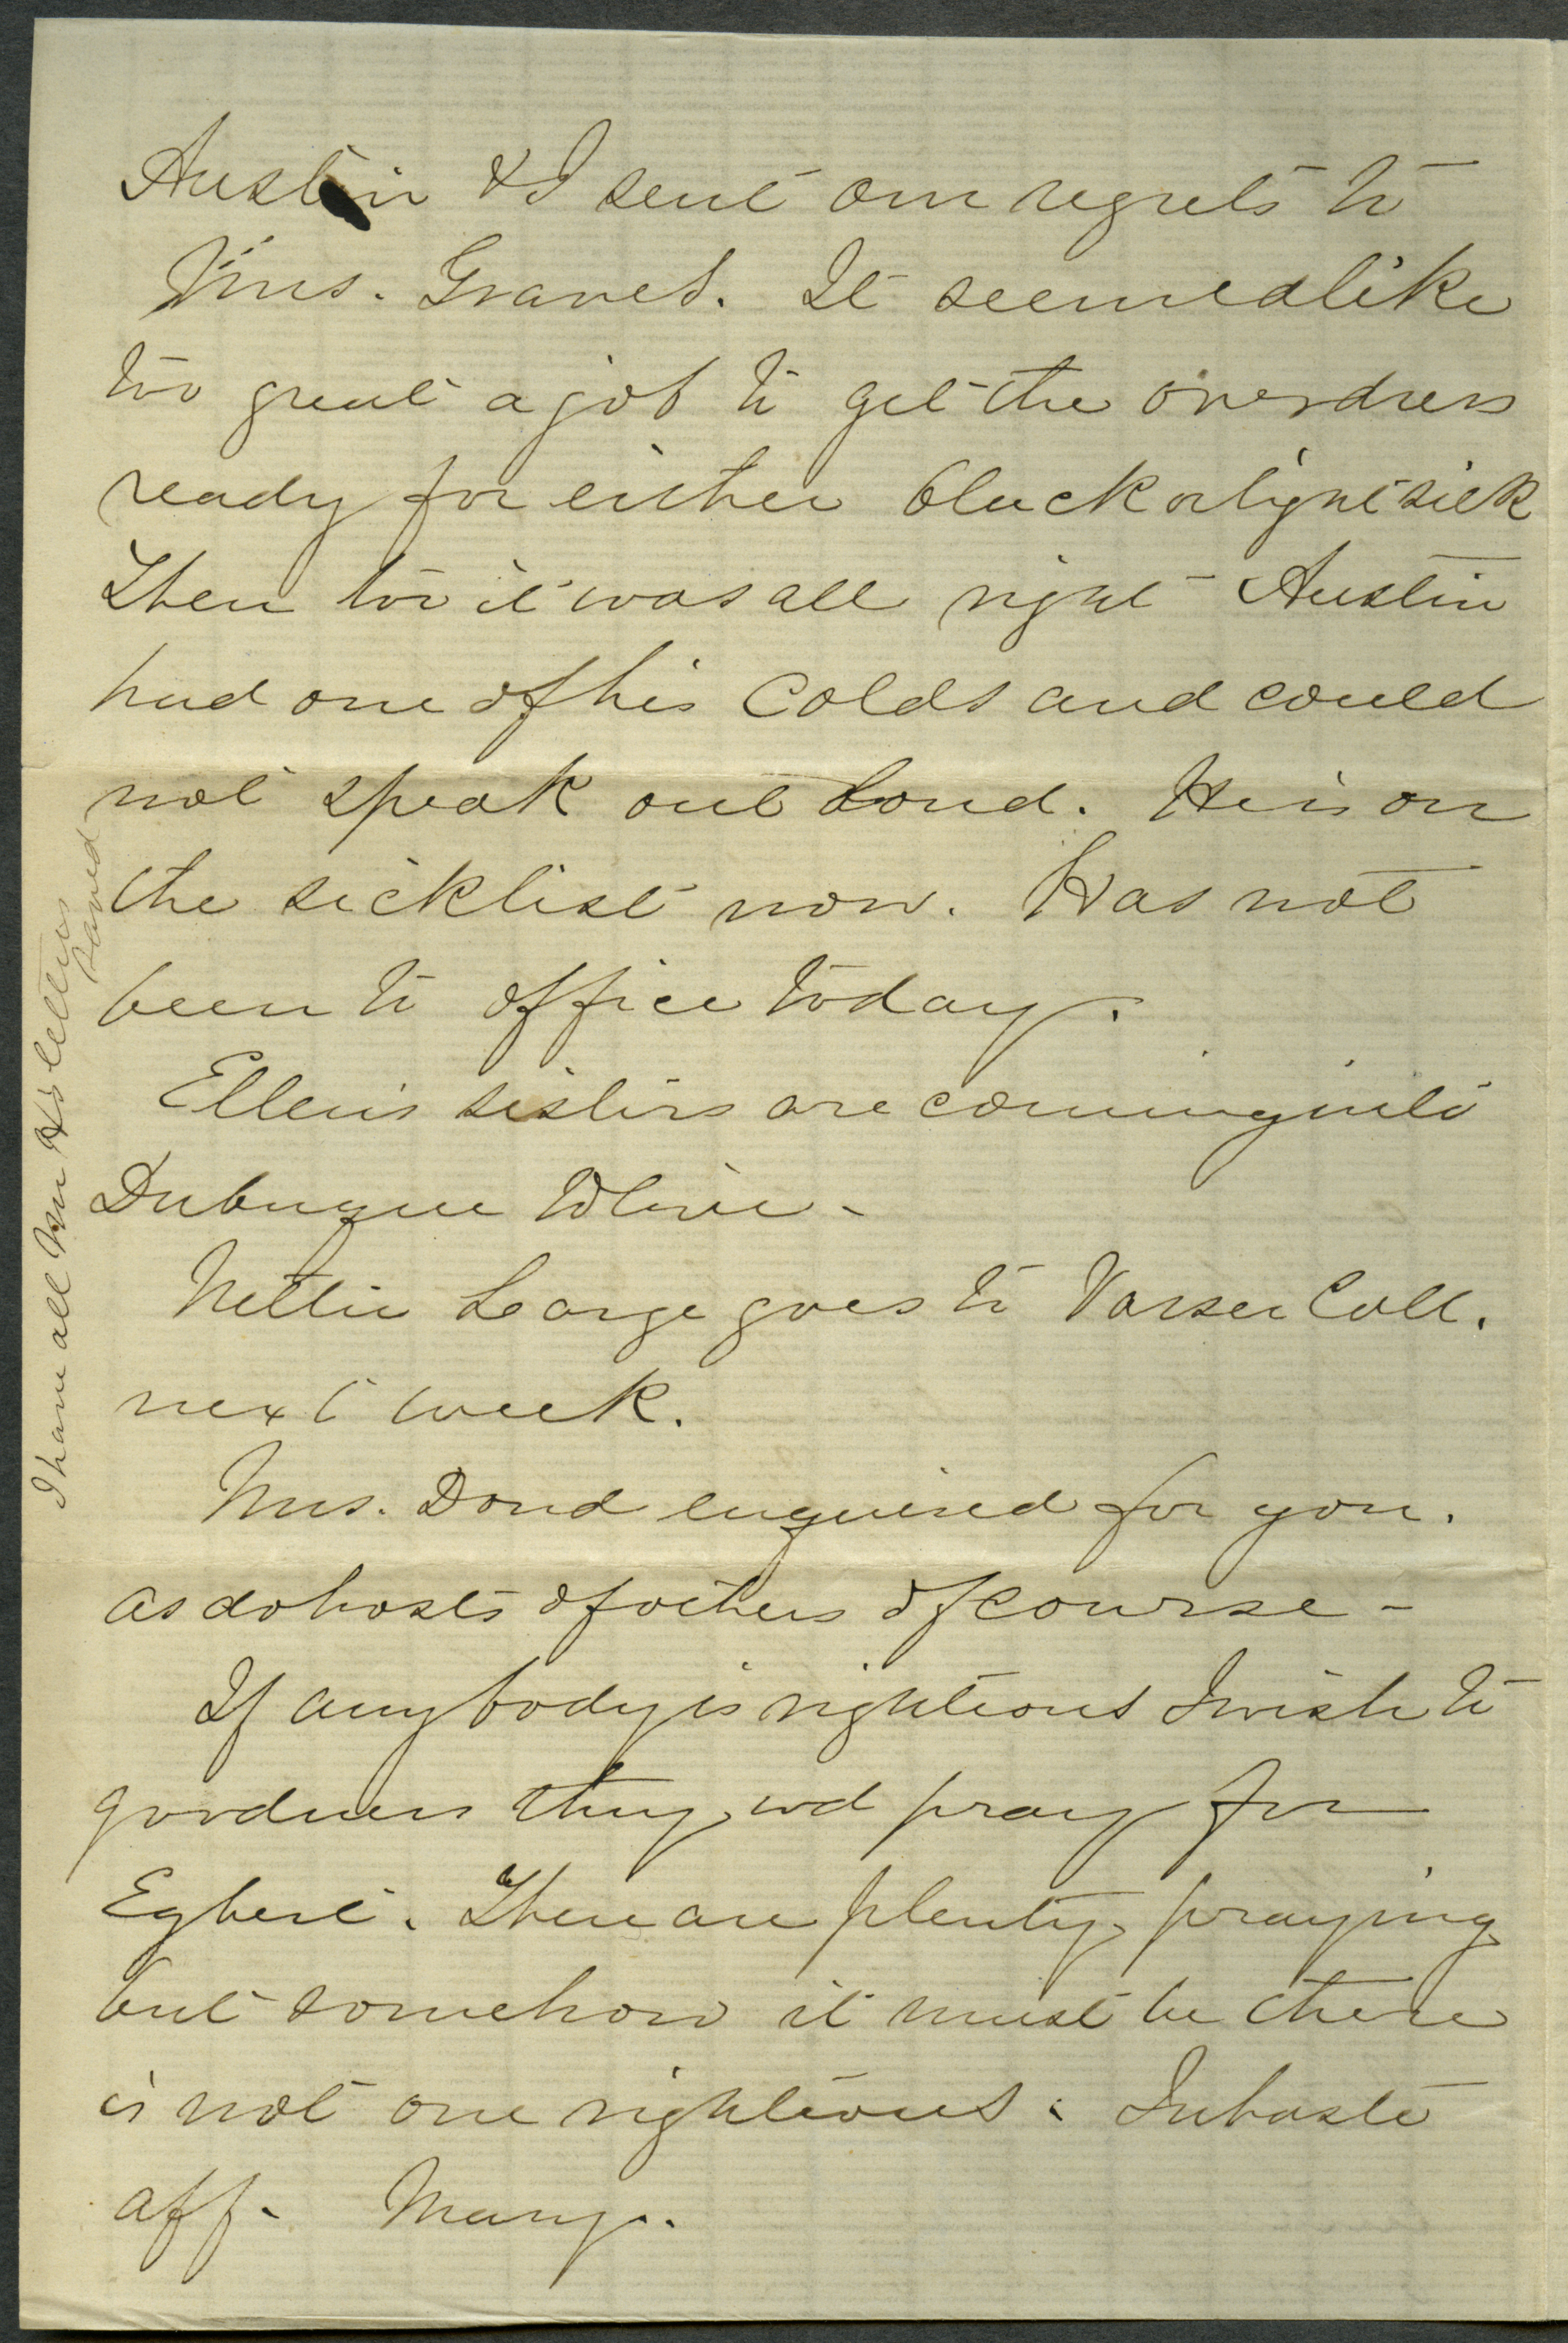 Austin & I sent our regrets to
Mrs. Graves. It seemed like
too great a job to get the overdress
ready for either black or light silk
Then too it was all right - Austin
had one of his colds and could
not speak out loud. He is on
the sicklist now. Has not
been to office today.
Ellen's sisters are coming into
Dubuque to live -
Nettie Large goes to Vasser Coll.
next week.
Mrs. Dond enquired for you.
as do hosts of others of course -
If anybody is righteous I wish to
goodness they wd pray for
Egbert. There are plenty praying
but somehow it must be there
is not one righteous. In haste
aff. Mary.
I have all Mr H's letters
saved